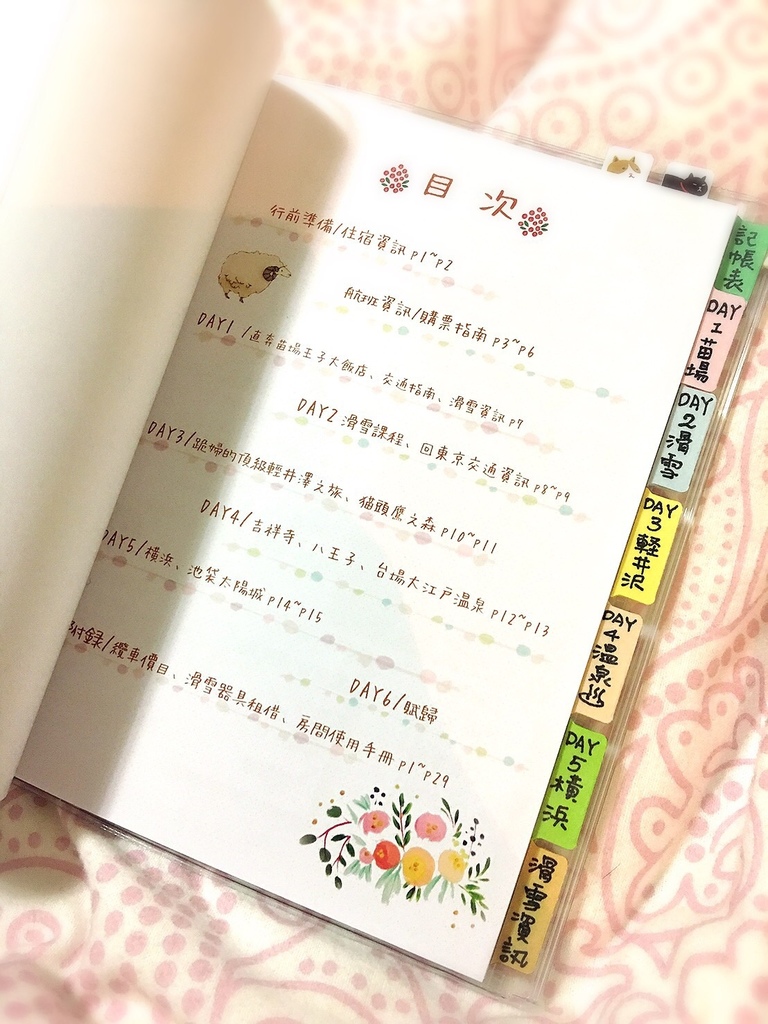 目次
行前準備/住宿資訊 p1~p2
航班資訊/購票指南 p3~p6
DAY1 /直奔苗場王子大飯店、交通指南、滑雪資訊 p7
DAY2 滑雪課程、回東京交通資訊 p8~p9
DAY3/跪婦的頂級輕井澤之旅、貓頭鷹之森 p10~p11
DAY4/吉祥寺、八王子、台場大江戸溫泉 p12~p13
DAY5/橫浜、池袋太陽城 p14~p15
DAY6/賦歸
附錄/纜車價目、滑雪器具租借、房間使用手冊 p1~p29
記帳表
DAY
1
苗場
DAY
2
滑雪
DAY
3
軽井沢
DAY
4
溫泉
DAY
5
橫浜
滑雪資訊